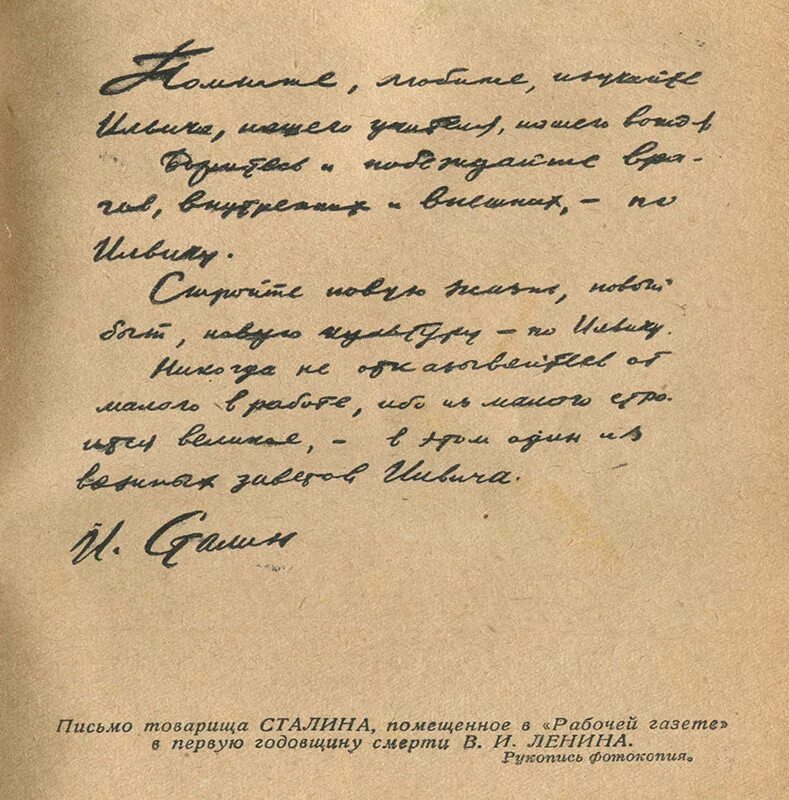 Помните, любите, изучайте
Ильича, нашего учителя, нашего вождя
Боритесь и побеждайте вра-
гов, внутренних и внешних, – по
Ильичу.
Стройте новую жизнь, новый
быт, новую культуру – по Ильичу.
Никогда не отказывайтесь от
малого в работе, ибо из малого стро-
ится великое, – в этом один из
важных заветов Ильича.
И. Сталин
Письмо товарища СТАЛИНА, помещенное в «Рабочей газете»
в первую годовщину смерти В. И. ЛЕНИНА.
Рукопись фотокопия.